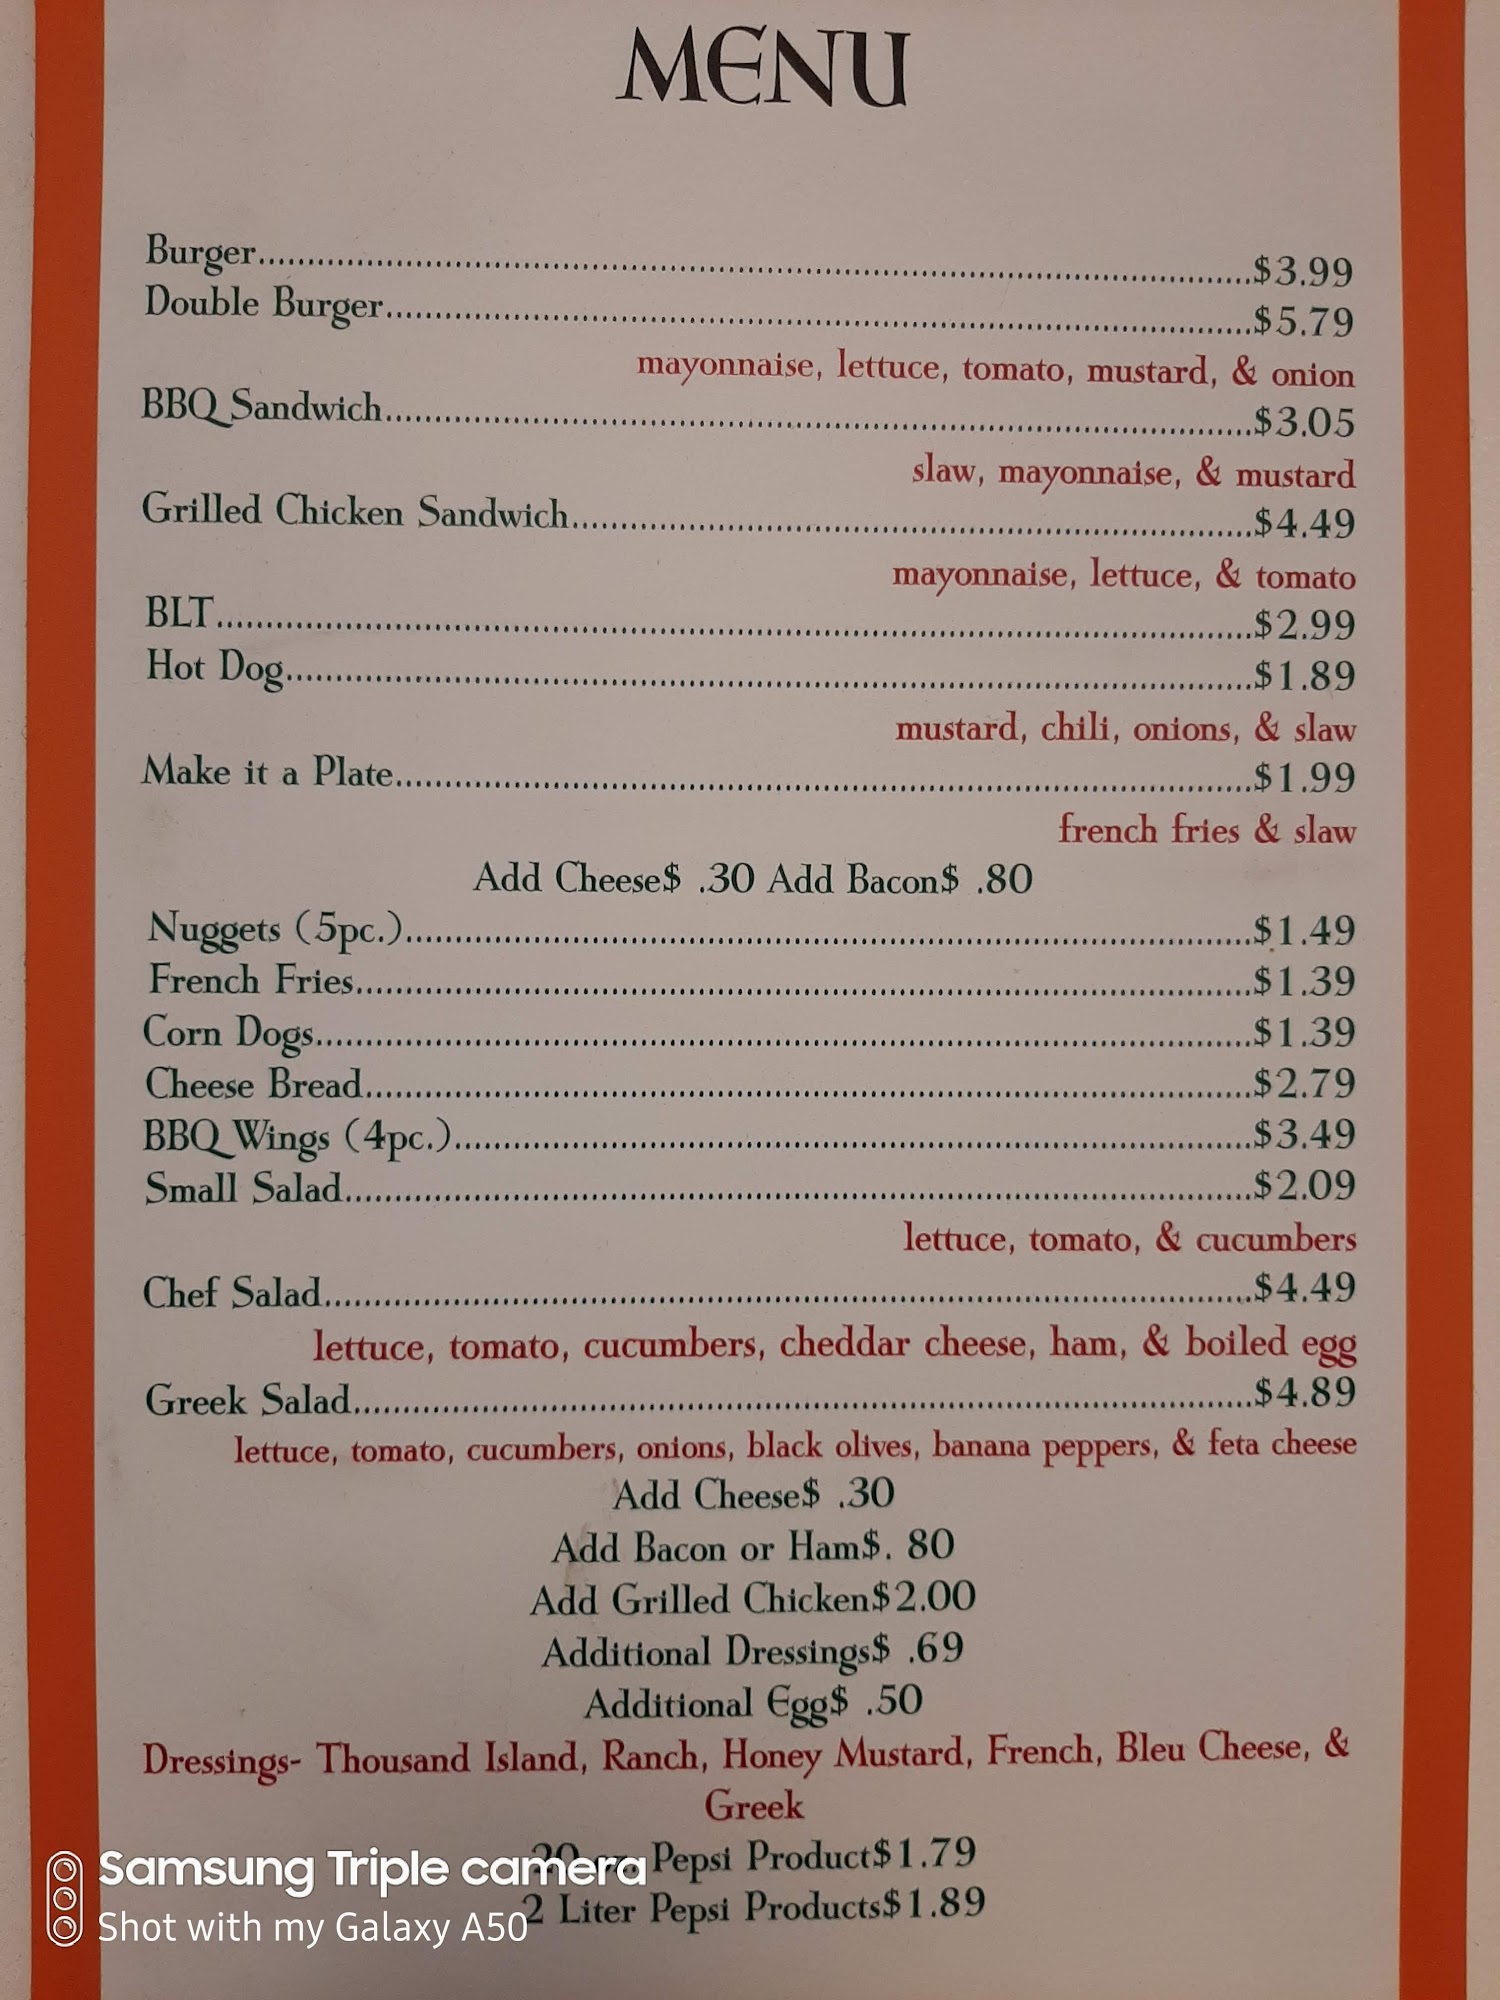 MENU
Burger..........$3.99
Double Burger..........$5.79
mayonnaise, lettuce, tomato, mustard, & onion
BBQ Sandwich..........$3.05
slaw, mayonnaise, & mustard
Grilled Chicken Sandwich..........$4.49
mayonnaise, lettuce, & tomato
BLT..........$2.99
Hot Dog..........$1.89
mustard, chili, onions, & slaw
Make it a Plate..........$1.99
french fries & slaw
Add Cheese$ .30 Add Bacon$ .80
Nuggets (5pc.)..........$1.49
French Fries..........$1.39
Corn Dogs..........$1.39
Cheese Bread..........$2.79
BBQ Wings (4pc.)..........$3.49
Small Salad..........$2.09
lettuce, tomato, & cucumbers
Chef Salad..........$4.49
lettuce, tomato, cucumbers, cheddar cheese, ham, & boiled egg
Greek Salad..........$4.89
lettuce, tomato, cucumbers, onions, black olives, banana peppers, & feta cheese
Add Cheese$ .30
Add Bacon or Ham$. 80
Add Grilled Chicken$2.00
Additional Dressings$ .69
Additional Egg$ .50
Dressings- Thousand Island, Ranch, Honey Mustard, French, Bleu Cheese, &
Greek
20 oz. Pepsi Product$1.79
2 Liter Pepsi Products$1.89
Samsung Triple camera
Shot with my Galaxy A50